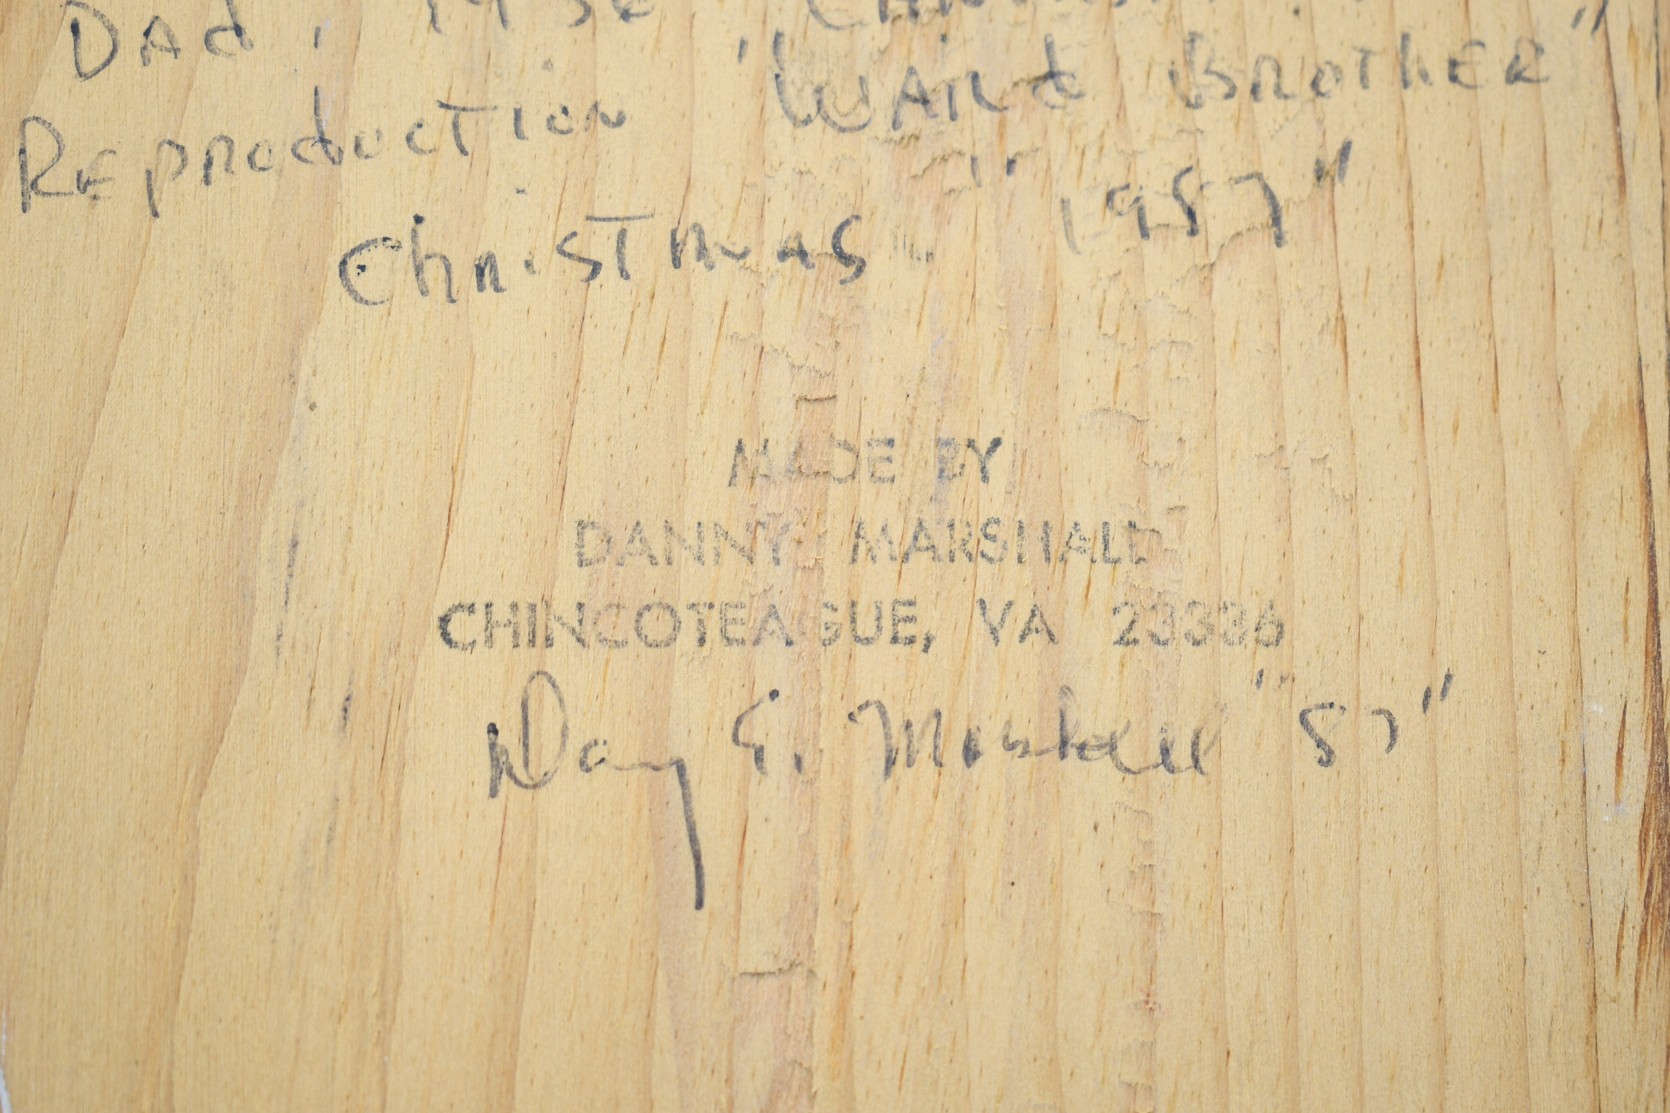 DAd,
REproduction "WARd BROTHER"
ChRiSTmAS "1987"
MADE BY
DANNY MARSHALL
CHINCOTEAGUE, VA 23336
Dany E. Marshall "87"